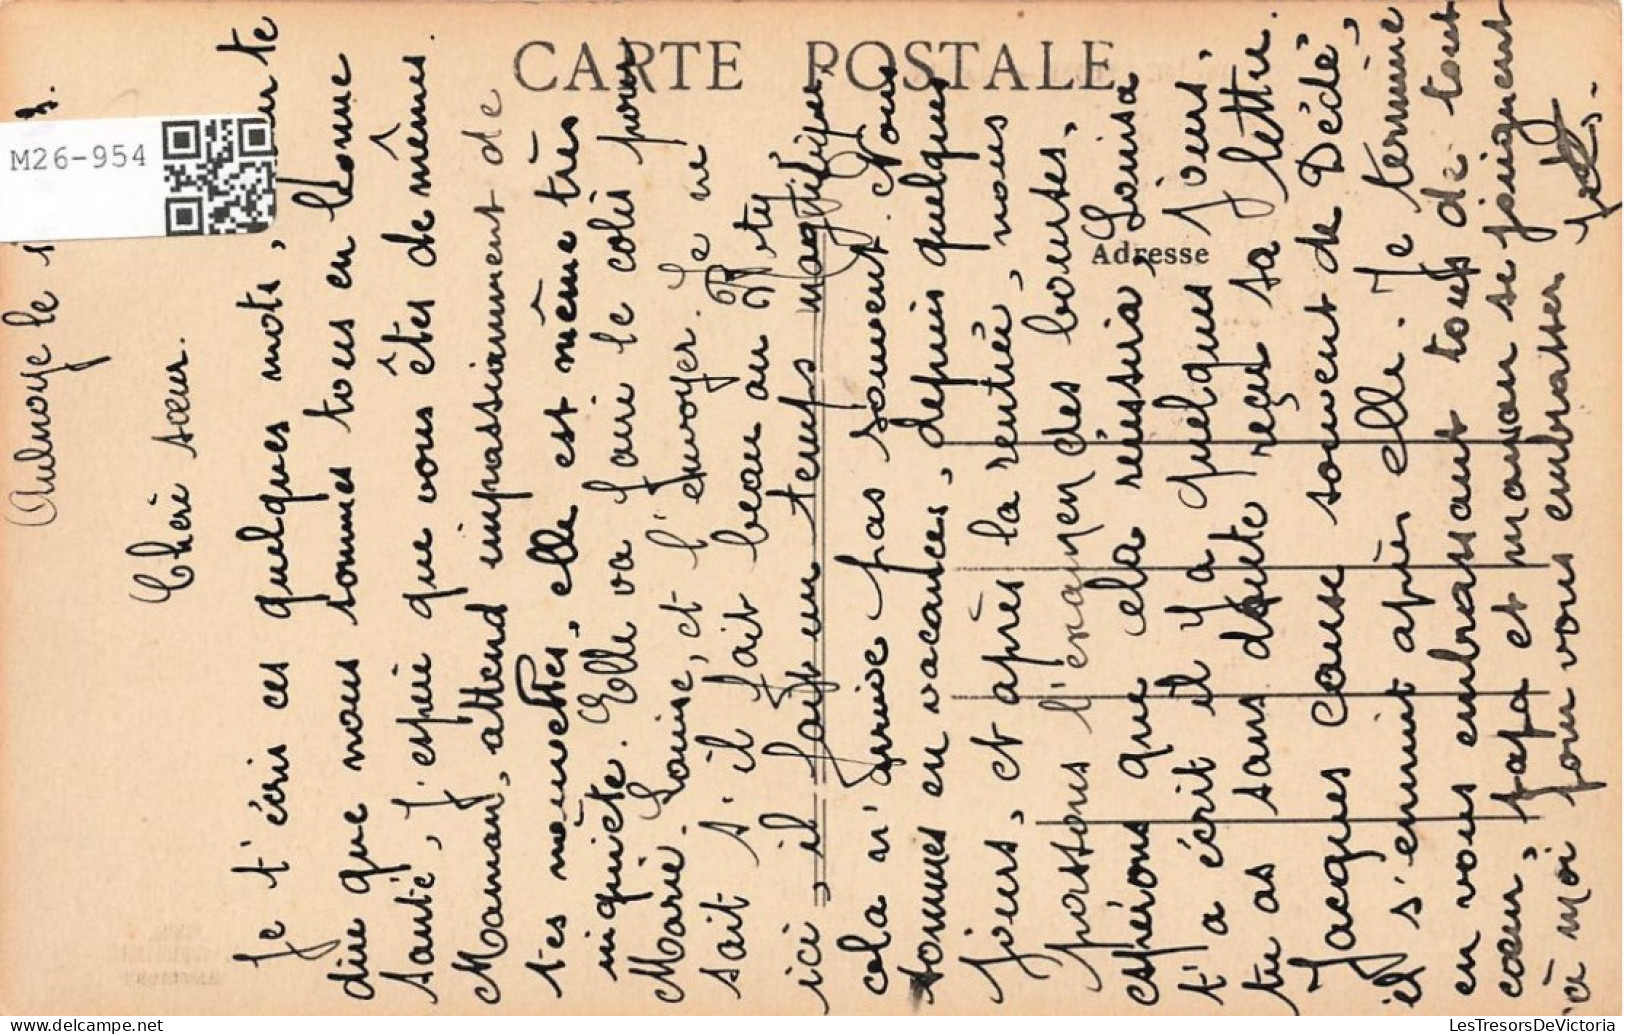 CARTE POSTALE
Adresse
M26-954
Aulnoye le
Chère sœur.
Je t'écris ces quelques mots, te
dire que nous sommes tous en bonne
santé, j'espère que vous êtes de mêmes.
Maman, attend impassiamment de
tes nouvelles, elle est même très
inquiète. Elle va faire le colis pour
Marie-Louise, et l'envoyer. Je ne
sait s'il fait beau au
ici, il fait un temps magnifique,
cela n'arrive pas souvent. Nous
sommes en vacances, depuis quelques
jours, et après la rentrée, nous
passons l'examen des bourses,
espérons que cela réussira, Louisa
t'a écrit il y a quelques jours,
tu as sans doute reçu sa lettre.
Jacques cause souvent de Dédé,
il s'ennuit après elle. Je termine
en vous embrassant tous de tout
cœur, papa et maman se joignent
à moi pour vous embrasser
LesTresorsDeVictoria